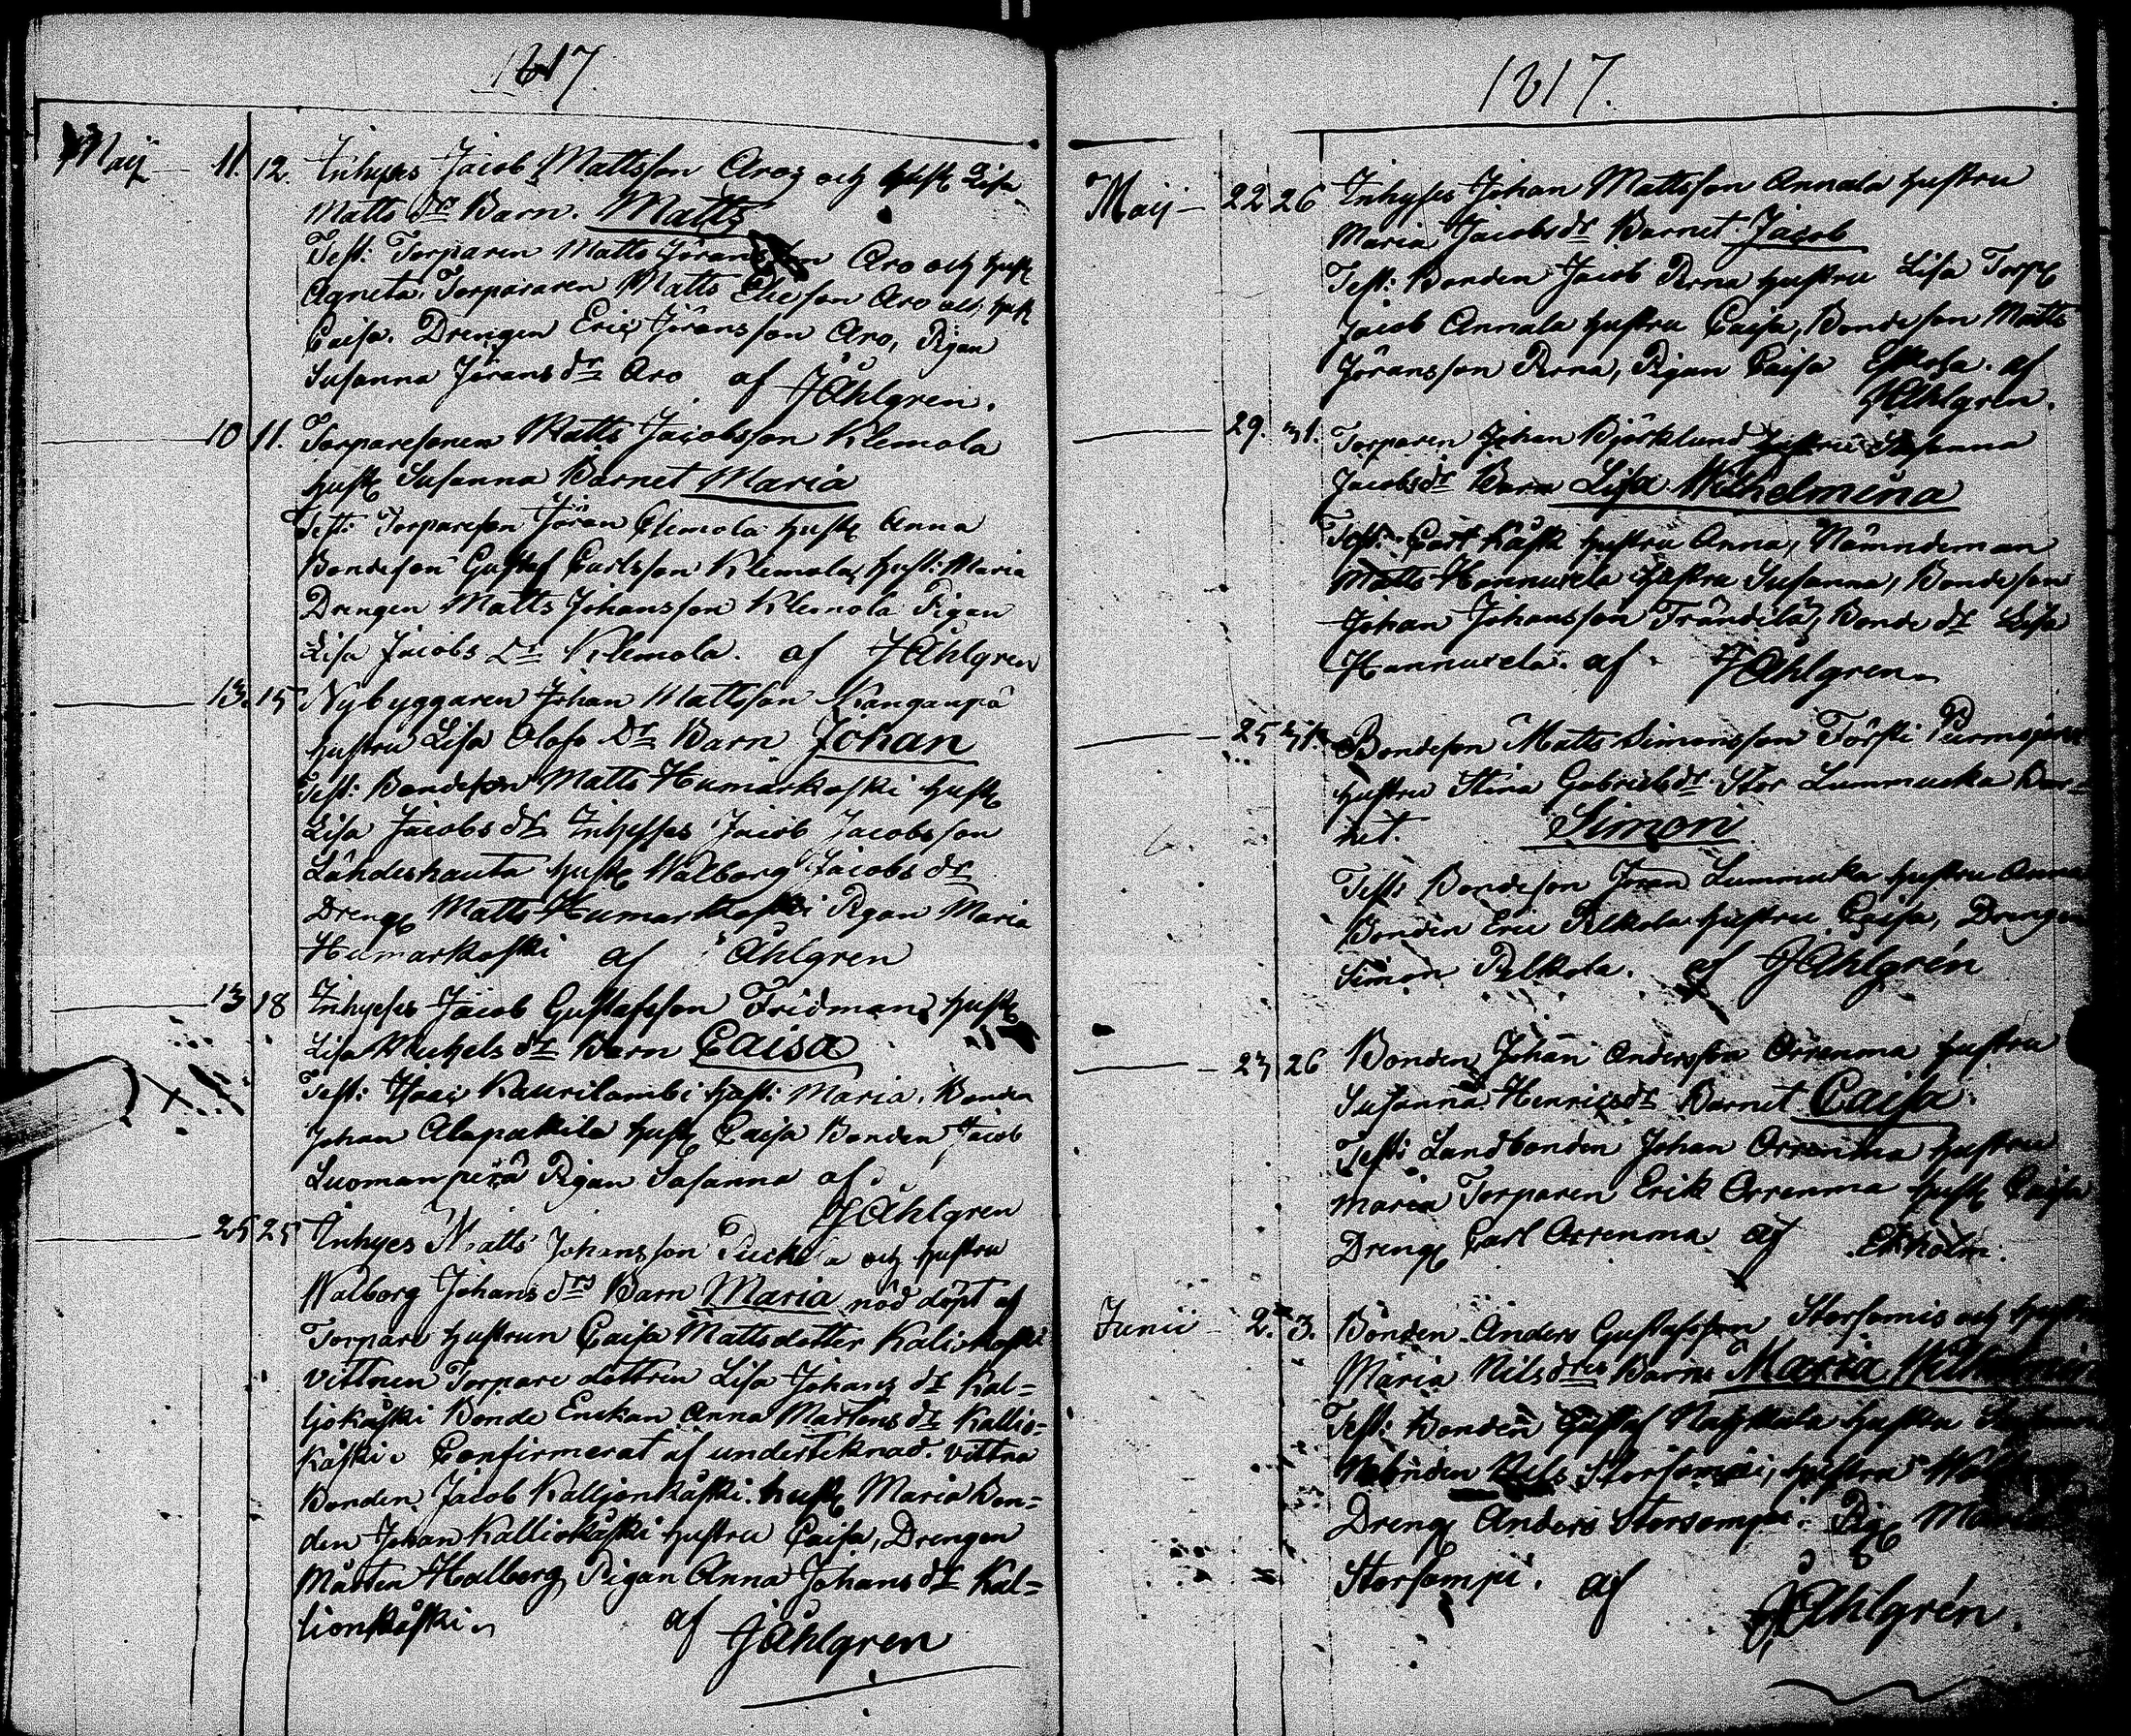 1817.
Maij 11. 12. Inhyses Jacob Mattsson Aro, och Hust Lisa
Matts dr Barn. Matts
Test: Torparen Matts Göransson Aro och Hust
Agneta. Torpararen Matts Elieson Aro och Hust
Caisa. Drengen Eric Göransson Aro, Pigan
Susanna Görans dr Aro af JÅhlgren.
10 11. Torparesonen Matts Jacobsson Klemola
Hust Susanna Barnet Maria
Test: Torpareson Jöran Clemola Hust Anna
Bondeson Gustaf Carlsson Klemola, Hust: Maria
Drengen Matts Johansson Klemola Pigan
Lisa Jacobs Dr Klemola. af JÅhlgren
13. 15 Nybyggaren Johan Mattsson Kanganpä
Hustru Lisa Olofs Dr Barn Johan
Test: Bondeson Matts Humarkoski Hust
Lisa Jacobs dr Inhyses Jacob Jacobsson
Lähdeshauta Hust Walborg Jacobs dr
Dreng Matts Humarkoski Pigan Maria
Humarkoski af Åhlgren
13 18 Inhyses Jacob Gustafsson Fridman, Hust
Lisa Michels dr Barn Caisa
Test: Isaac Kaurilambi Hust: Maria. Bonden
Johan Alapakila Hust Caisa Bonden Jacob
Luomanperä Pigan Susanna af
JÅhlgren
25 25 Inhyes Matts Johansson och Hustru
Walborg Johans drs Barn Maria nöd döpt af
Torpare Hustrun Caisa Mattsdotter Kaliokoski
Vittnen Torpare dottren Lisa Johans dr Kal=
ljokåski Bonde Enckan Anna Mårtens dr Kallio=
kåski. Confirmerat af undertecknad. vittna
Bonden Jacob Kalljonkåski. Hust Maria Bon=
den Johan Kalliokåski Hustru Caisa, Drengen
Mårten Halberg, Pigan Anna Johans dr Kal=
lionkåski. af JÅhlgren
1817.
Maij 22 26 Inhyses Johan Mattsson Annala Hustru
Maria Jacobs dr Barnet Jacob
Test: Bonden Jacob Perna Hustru Lisa Torp
Jacob Annala Hustru Caisa, Bondeson Matts
Göransson Perna, Pigan Caisa af
JÅhlgren.
29. 31. Torparen Johan Björklund Hustru Susanna
Jacobs dr Barn Lisa Wilhelmina
Test: Carl Kåsk Hustru Anna, Nämndeman
Matts Hannuxela Hustru Susanna, Bondeson
Johan Johansson Trändilä, Bonde dr Lisa
Hannuxela. af JÅhlgren.
25 31. Bondeson Matts Simonsson Törsti
Hustru Stina Gabriels dr Stor Lummucka Bar=
net. Simon
Test: Bondeson Jöran Lummucka Hustru Anna
Bonden Eric Pelkola Hustru Caisa, Drengen
Simon Pelkola. af JÅhlgrén
23 26 Bonden Johan Andersson Orrenma Hustru
Susanna Henrics dr Barnet Caisa.
Test: Landbonden Johan Orrenma Hustru
Maria Torparen Erik Orrenma Hust Caisa
Dreng Carl Orrenma af Ekholm.
Junii 2. 3. Bonden Anders Gustafsson och Hustru
Maria Nils dres Barns Maria
Test: Bonden Gustaf Hustru
Bonden Nils Storsompi, Hustru
Dreng Anders Storsompi. Pig Maria
Storsompi. af
JÅhlgrén.